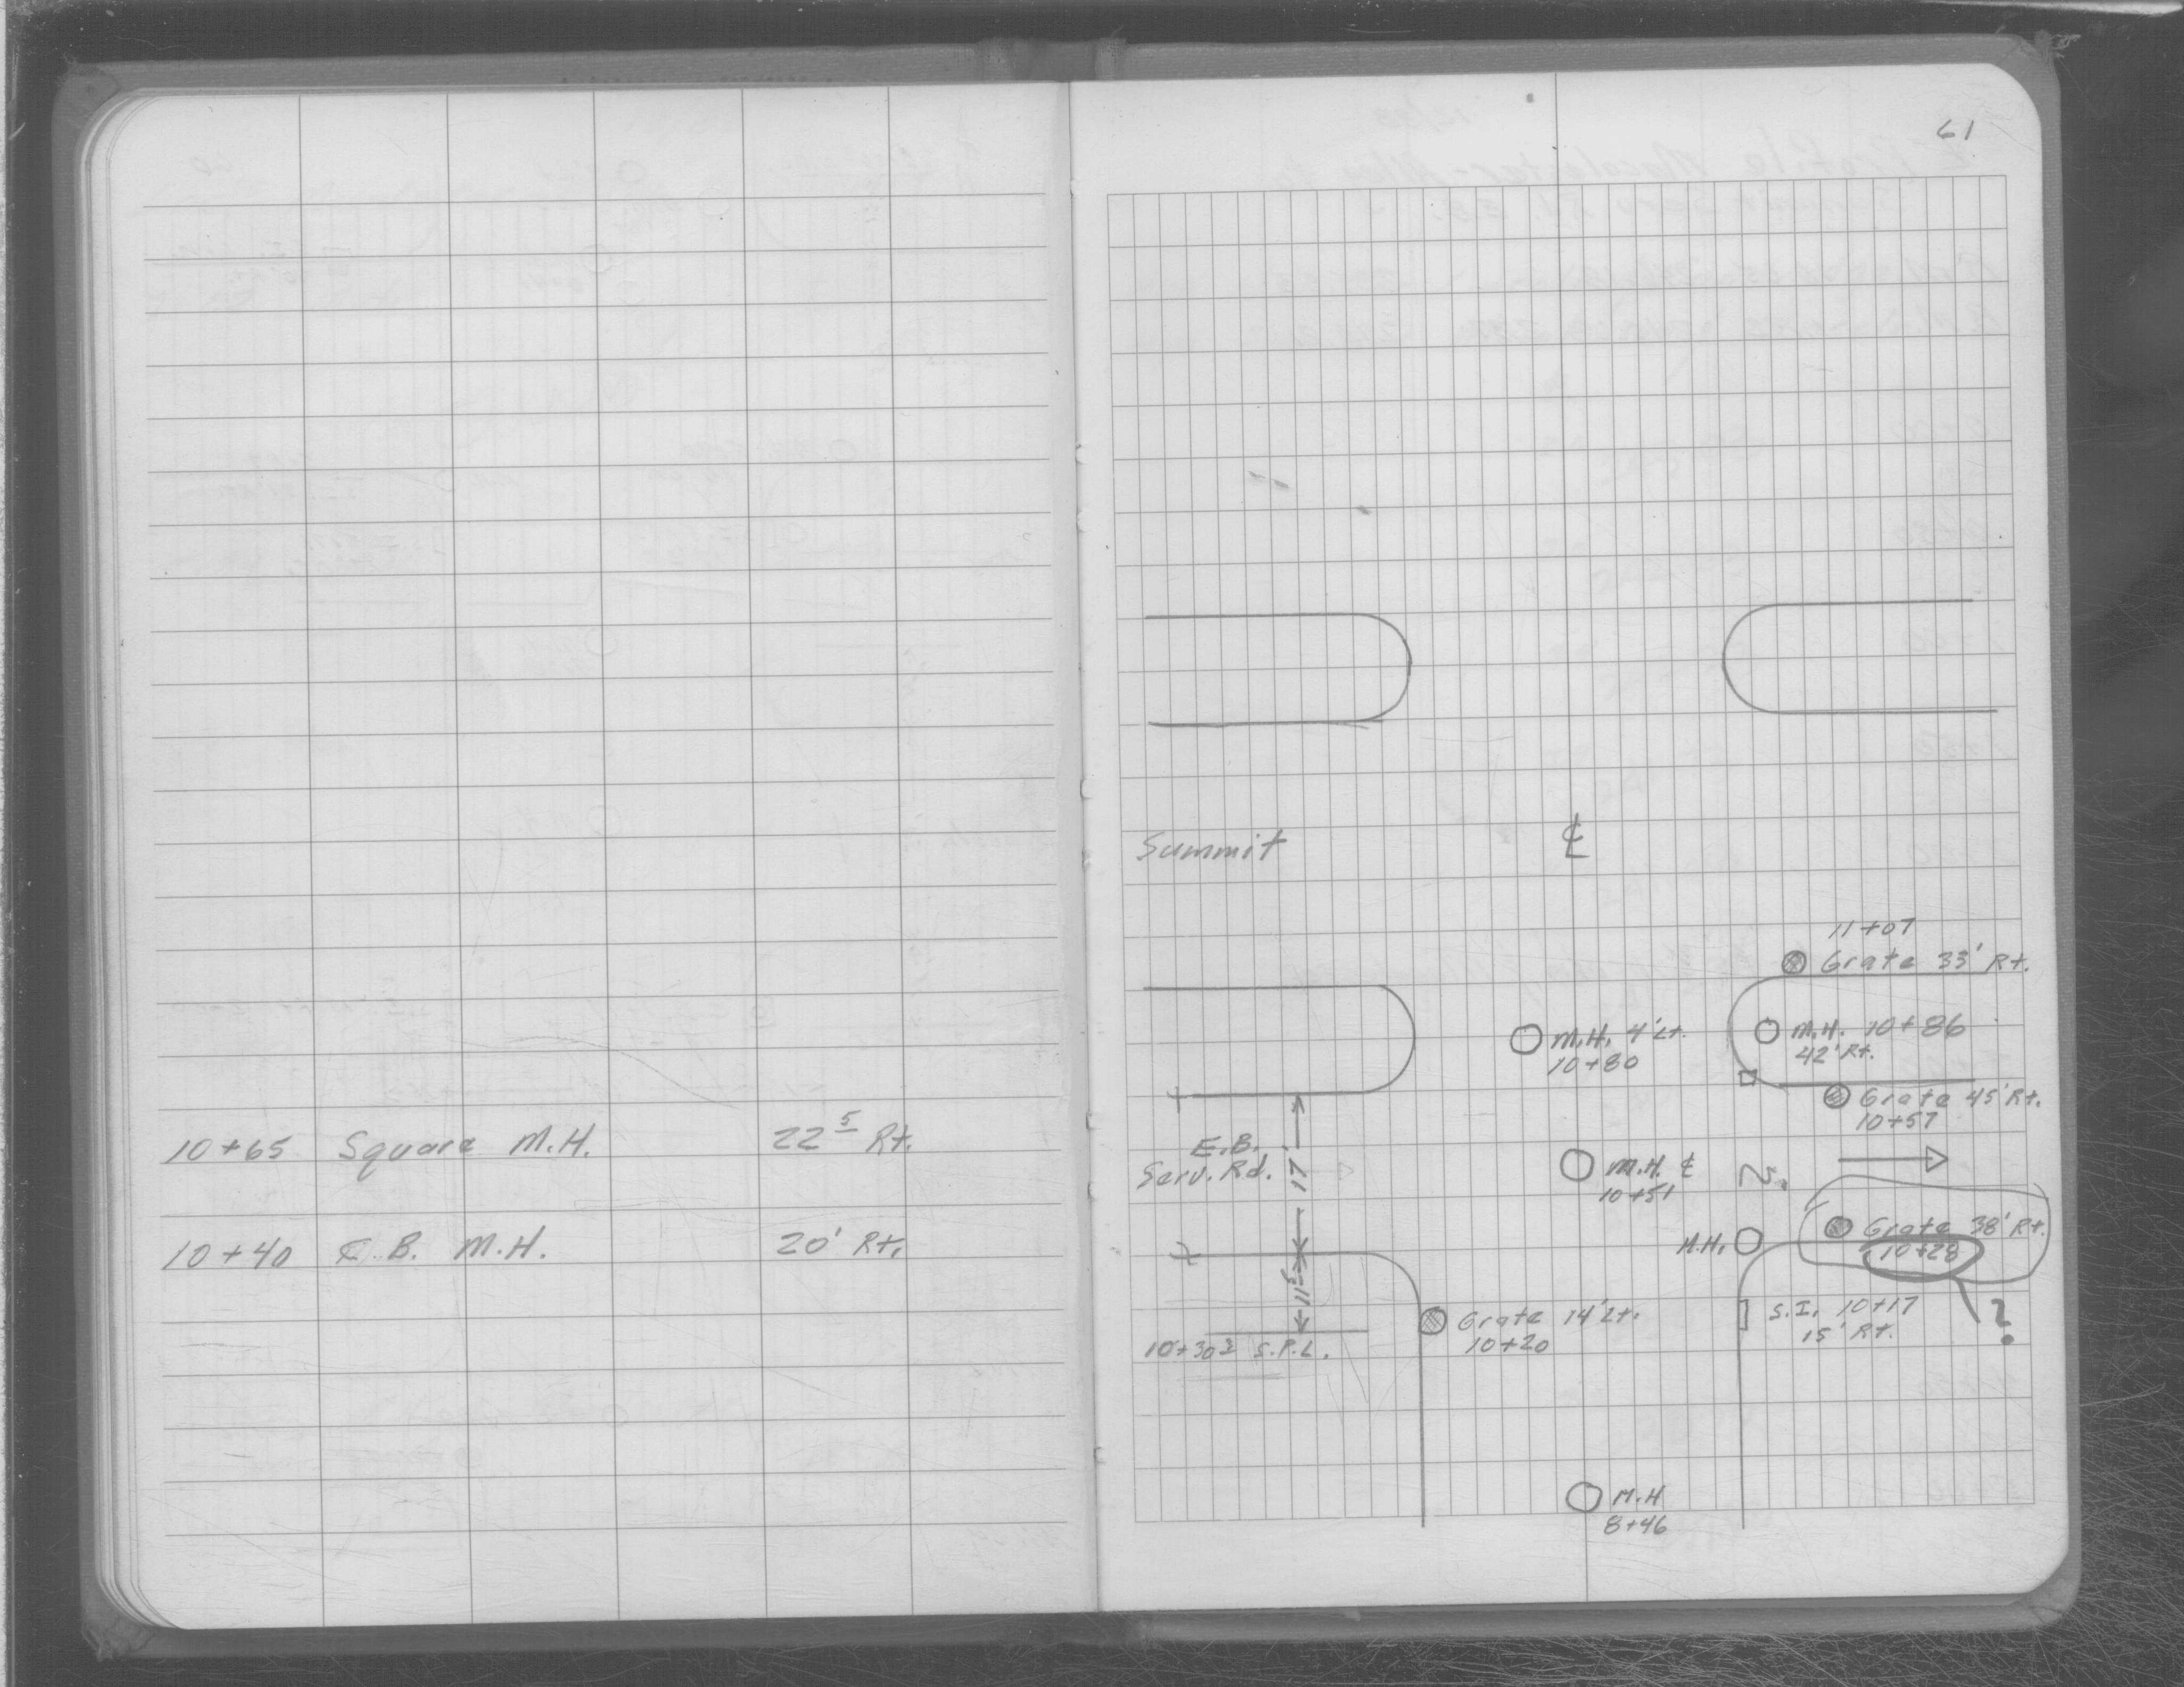 10+65 Square M.H. 22 5 Rt.
10+40 C.B. M.H. 20' Rt.
61
Summit
℄
11+07
Grate 33' Rt.
M.H. 4' Lt.
10+80
M.H. 10+86
42' Rt.
Grate 45' Rt.
10+57
E.B.
Serv. Rd.
17'
M.H. ℄
10+51
Grate 38' Rt.
10+28
H.H.
11
Grate 14' Lt.
10+20
S.I. 10+17
15' Rt.
?
10+30 S.P.L.
M.H
8+46